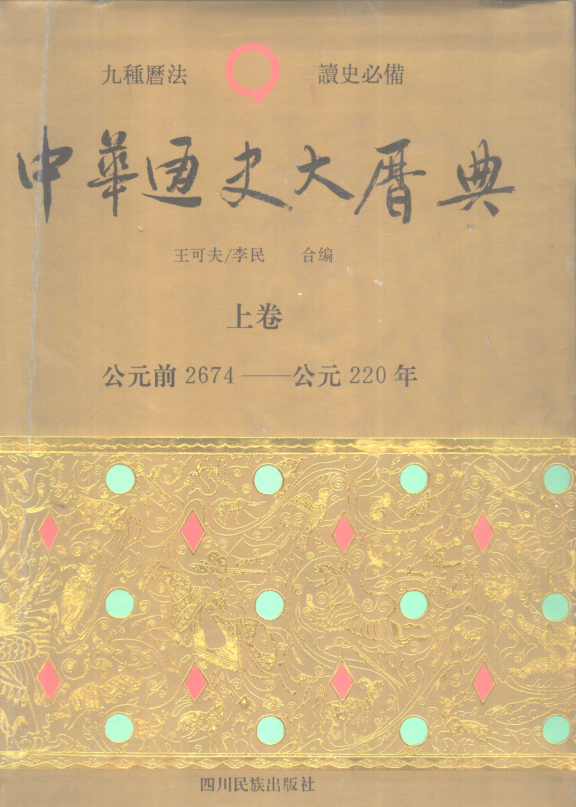 九種曆法 讀史必備
中華通史大曆典
王可夫/李民 合编
上卷
公元前2674——公元220年
四川民族出版社